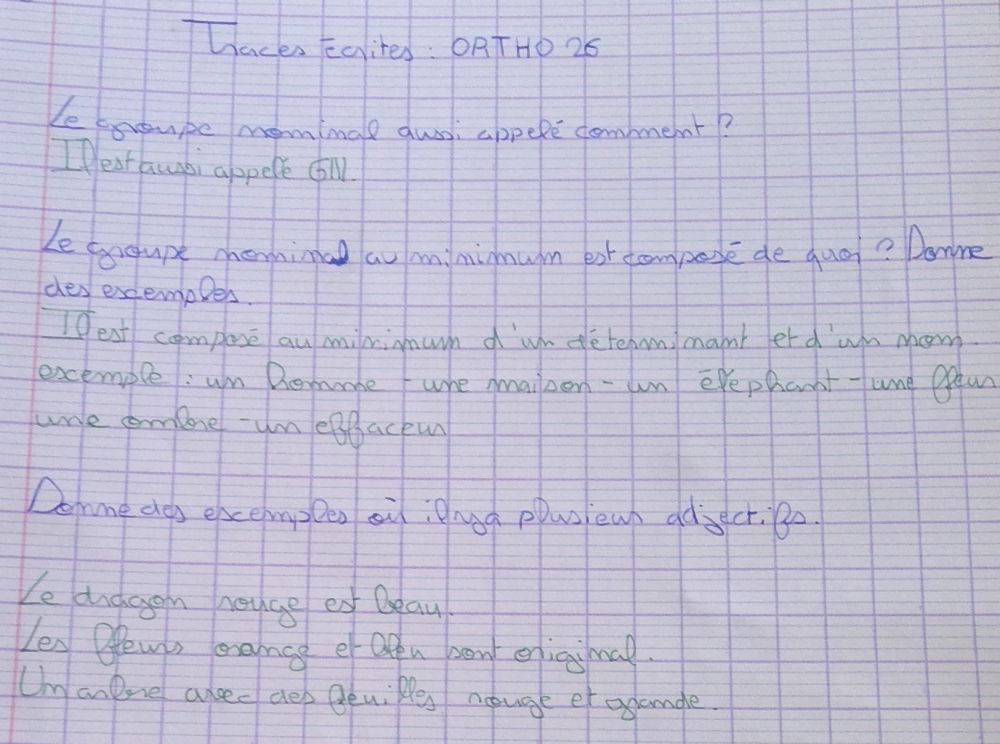 Traces Ecrites : ORTHO 26
Le groupe nominal aussi appelé comment ?
Il est aussi appelé GN.
Le groupe nominal au minimum est composé de quoi ? Donne
des excemples.
Il est composé au minimum d'un déterminant et d'un nom.
excemple : un homme - une maison - un éléphant - une fleur
une ombre - un effaceur
Donne des excemples où il n'y a plusieur adjectifs.
Le dragon rouge est beau.
Les fleurs orange et bleu sont original.
Un arbre avec des feuilles rouge et grande.